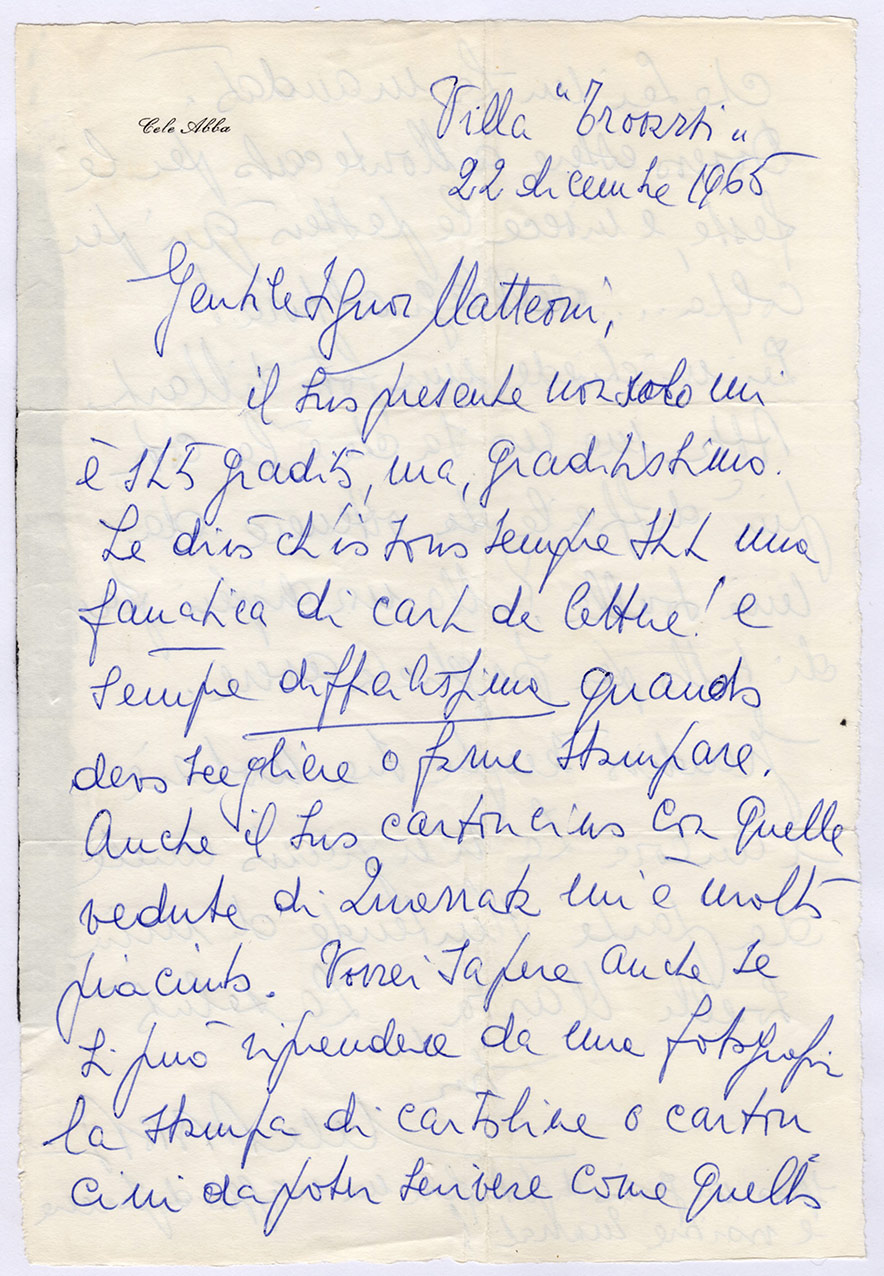 Cele Abba
Villa "Trossi"
22 dicembre 1965
Gentile Signor Matteoni,
il Suo presente non solo mi
è stato gradito, ma, graditissimo.
Le dirò ch'io sono sempre stata una
fanatica di carta da lettere! e
sempre difficilissima quando
devo scegliere o farne stampare.
Anche il Suo cartoncino con quella
veduta di mi è molto
piaciuto. Vorrei sapere anche se
si può riprendere da una fotografia
la stampa di cartoline o carton
cini da poter scrivere come quello